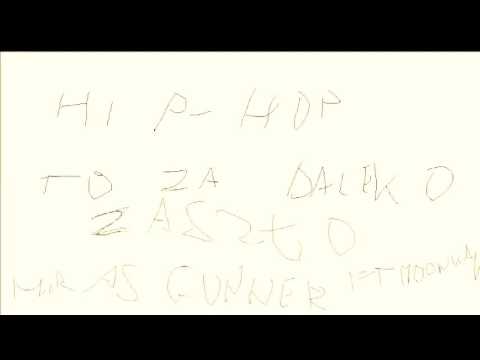 HIP-HOP
TO ZA DALEKO
ZASZŁO
MIRAS GUNNER FT